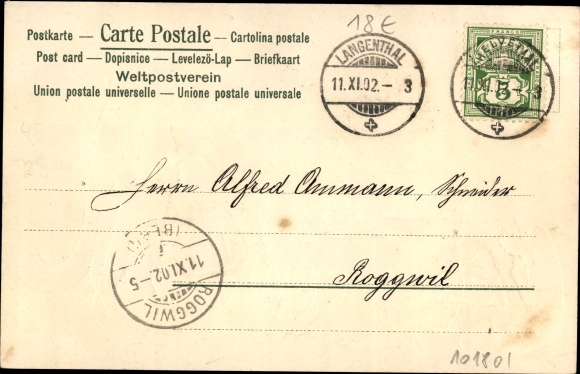 Postkarte — Carte Postale — Cartolina postale
Post card — Dopisnice — Levelező-Lap — Briefkaart
Weltpostverein
Union postale universelle — Unione postale universale
18 €
LANGENTHAL
11.XI.02.– 3
FRANCO
HELVETIA
5
LANGENTHAL
11.XI.02.– 3
Herrn Alfred Ammann, Schneider
Roggwil
(BERN)
11.XI.02.– 5
ROGGWIL
101801